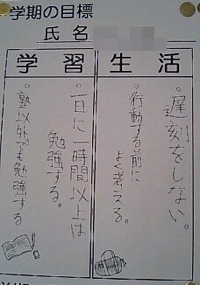 学期の目標
氏名
生活
・遅刻をしない。
・行動する前に
よく考える。
学習
・一日に一時間以上は
勉強する。
・塾以外でも勉強する